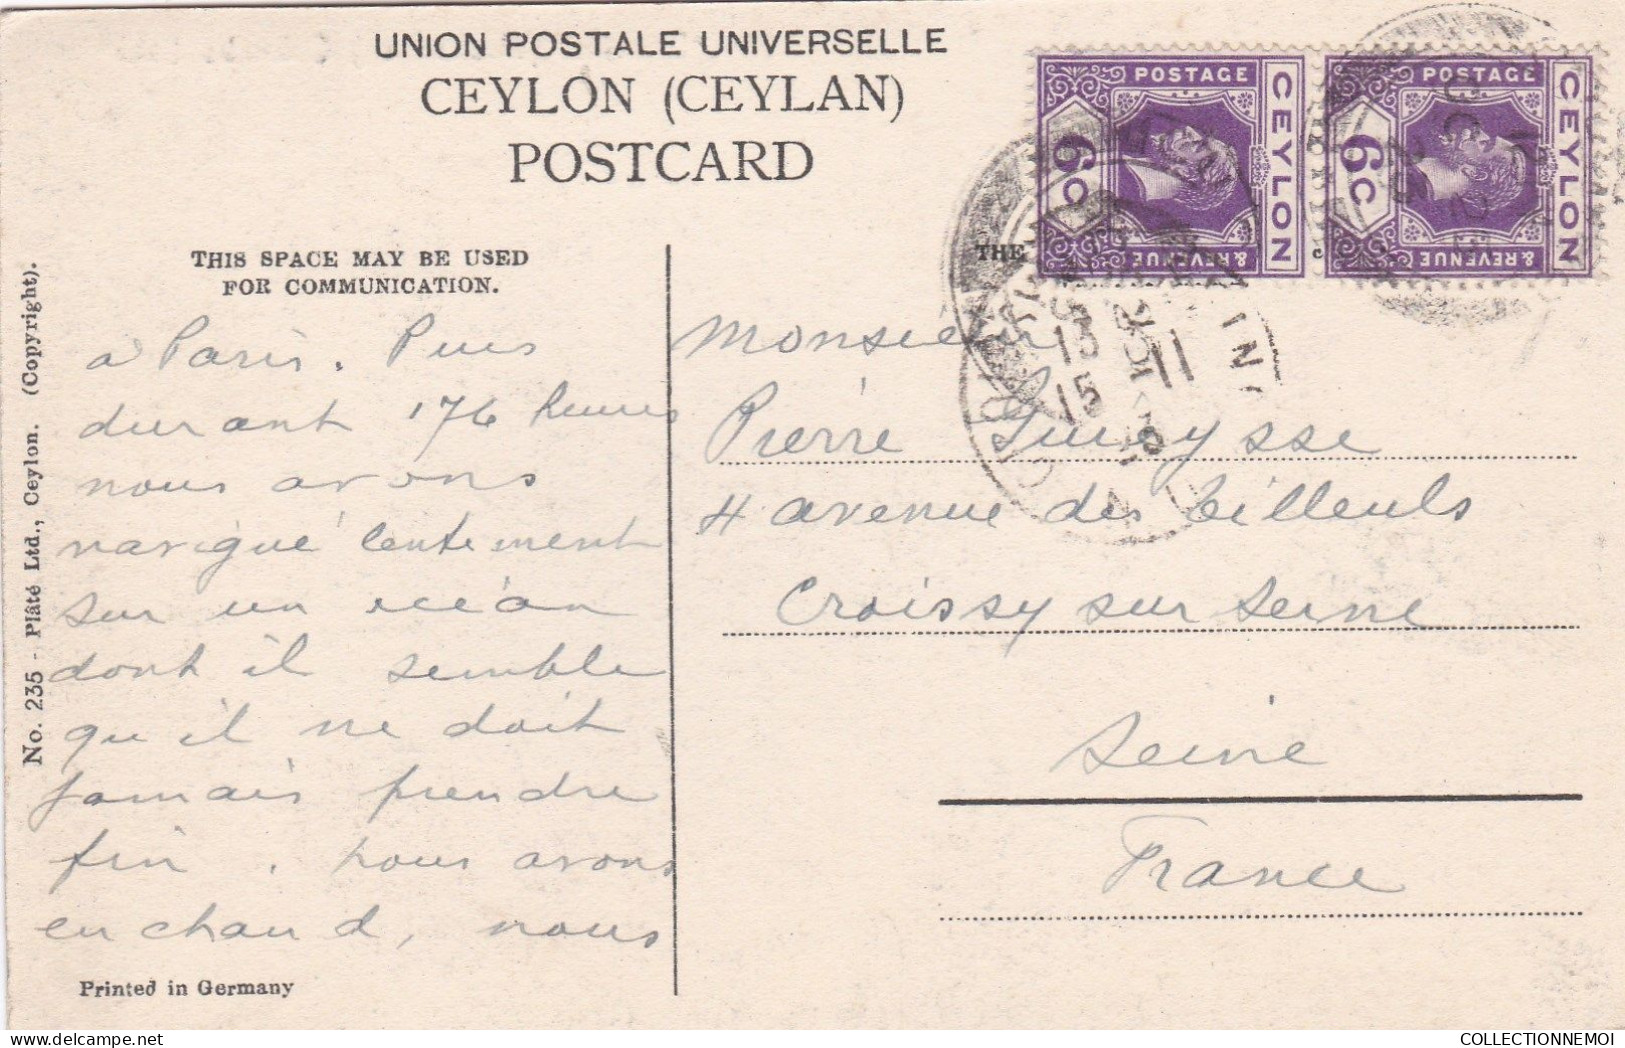 UNION POSTALE UNIVERSELLE
CEYLON (CEYLAN)
POSTCARD
THIS SPACE MAY BE USED
FOR COMMUNICATION.
THE
CEYLON
POSTAGE
& REVENUE
6C
CEYLON
POSTAGE
& REVENUE
6C
No. 235 - Plâté Ltd., Ceylon. (Copyright).
à Paris. Puis
durant 176 heures
nous avons
navigué lentement
sur un océan
dont il semble
qu'il ne doit
jamais prendre
fin. nous avons
eu chaud, nous
Printed in Germany
Monsieur
Pierre
4 avenue des tilleuls
Croissy sur Seine
Seine
France
13
15 11
COLLECTIONNEMOI